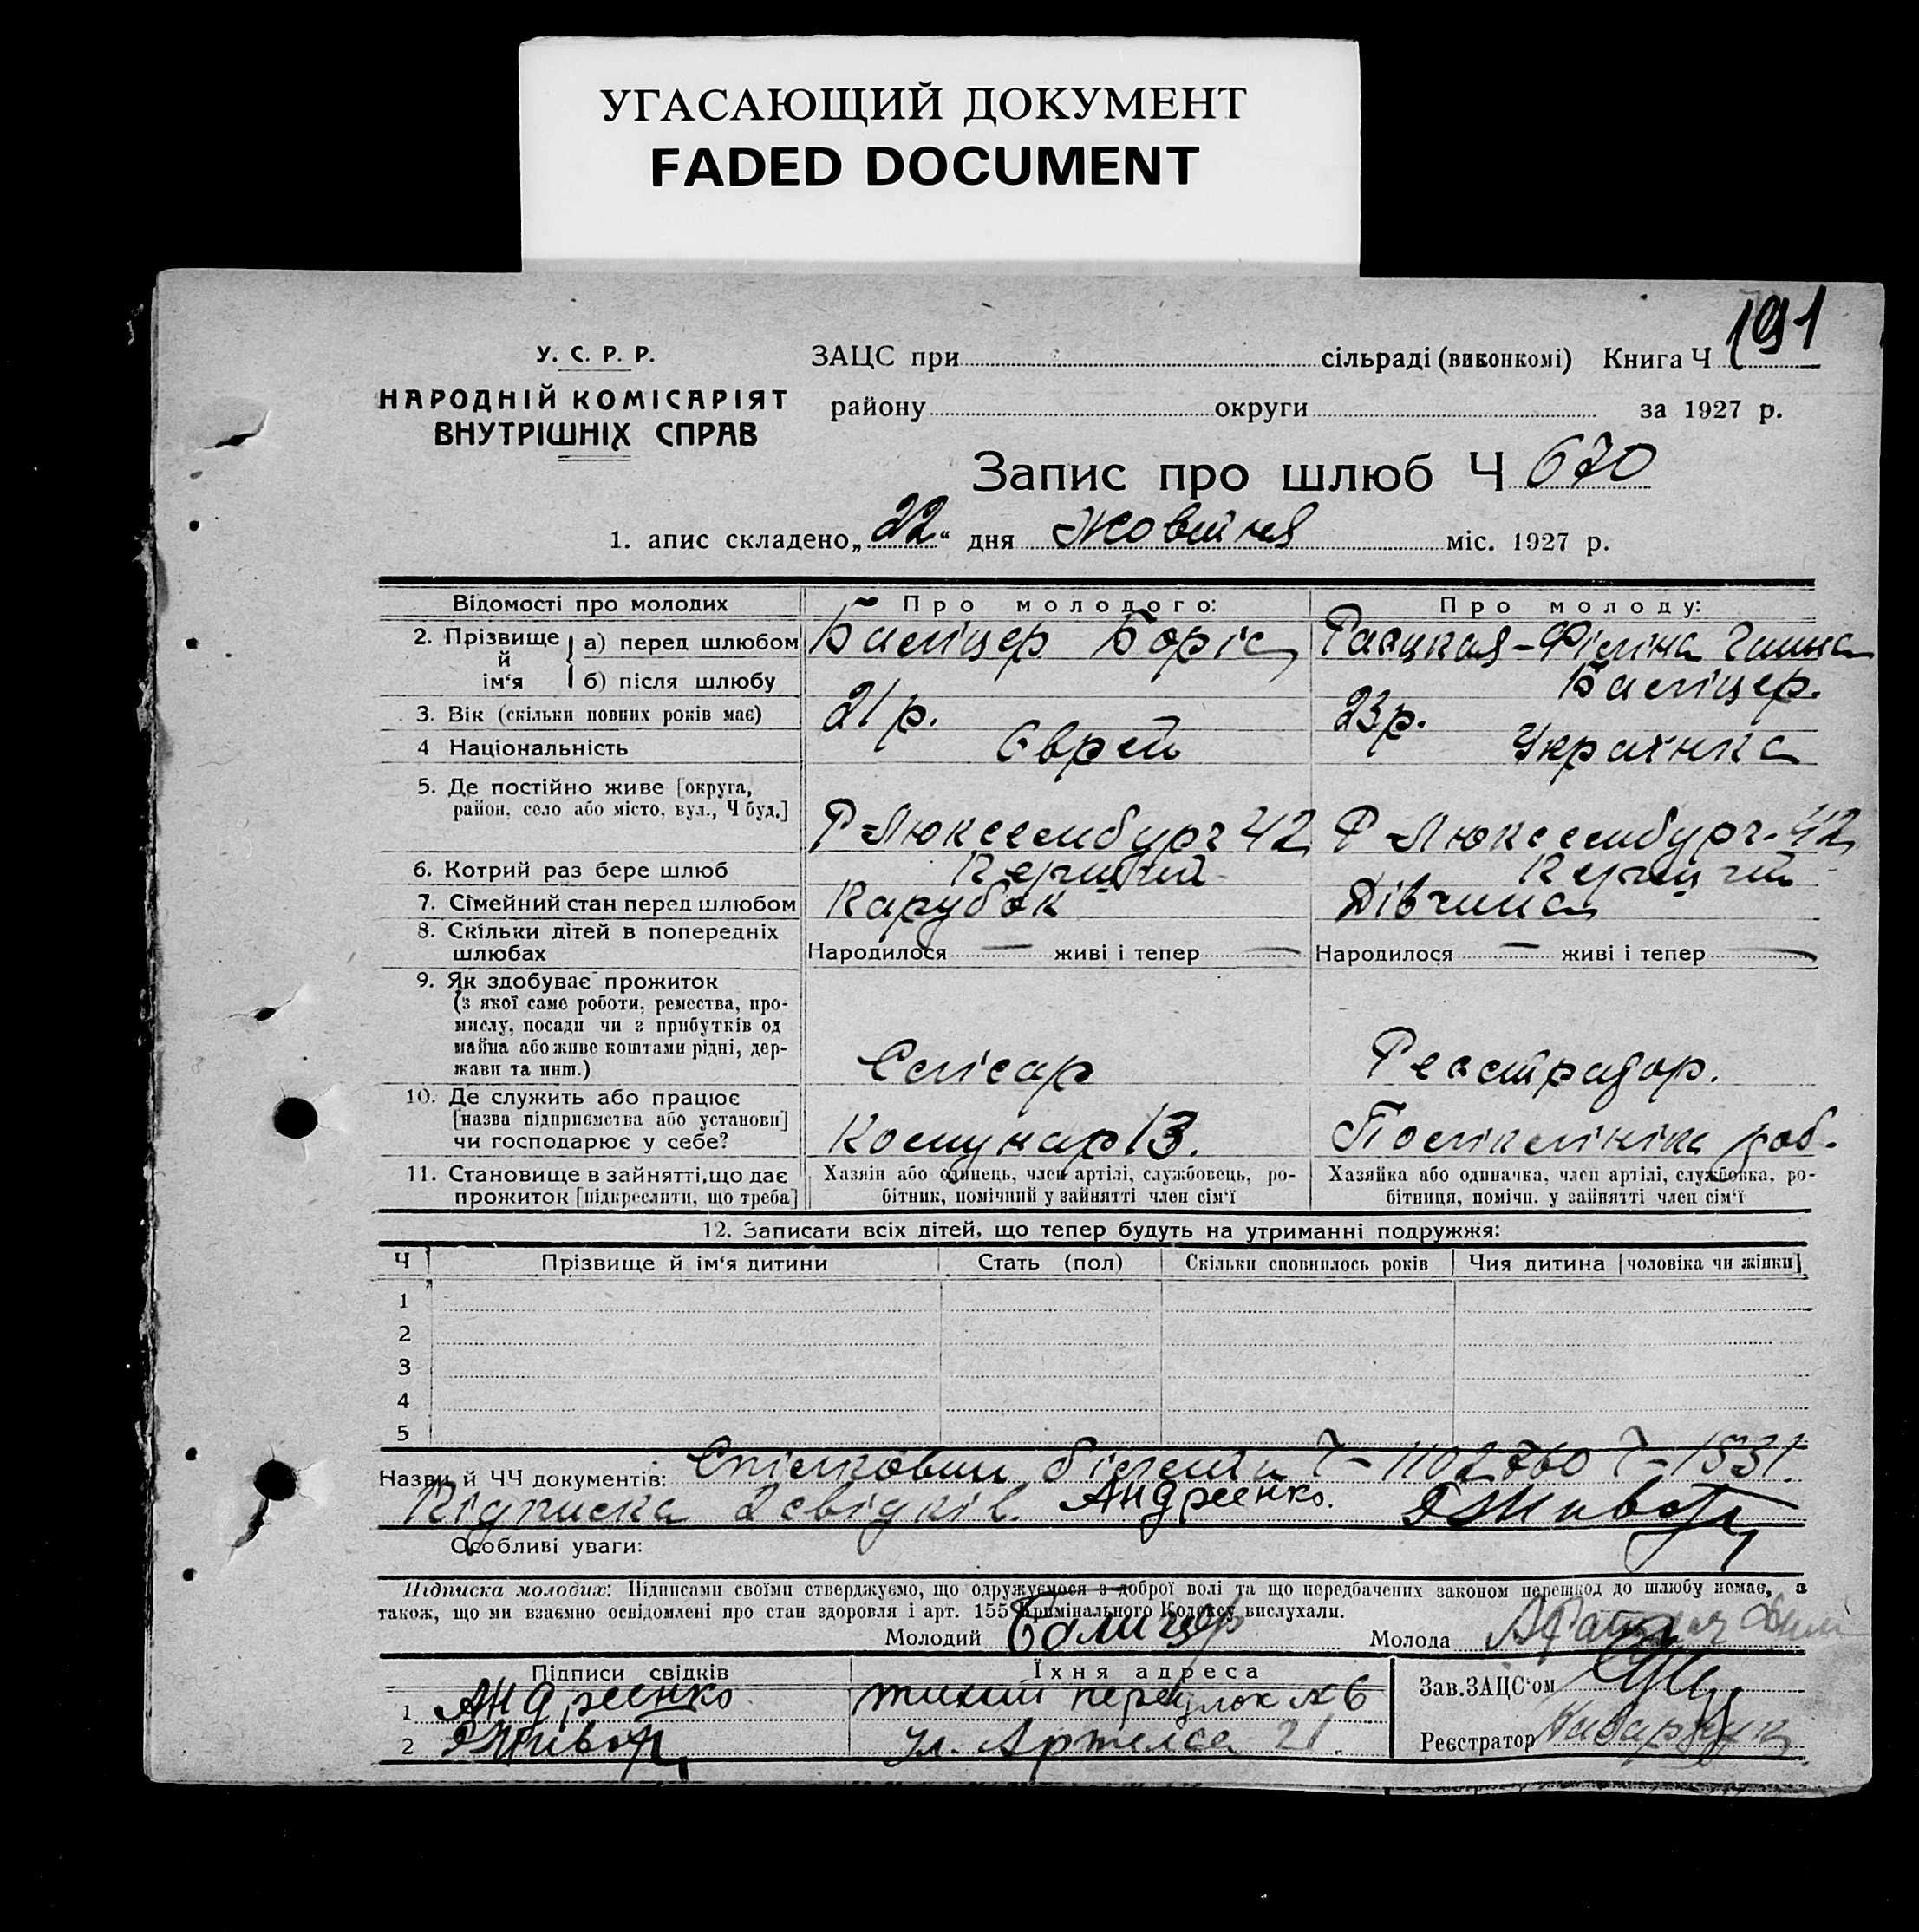 УГАСАЮЩИЙ ДОКУМЕНТ
FADED DOCUMENT
191
У. С. Р. Р.
НАРОДНІЙ КОМІСАРІЯТ
ВНУТРІШНІХ СПРАВ
ЗАЦС при сільраді (виконкомі) Книга Ч
району округи за 1927 р.
Запис про шлюб Ч 670
1. апис складено „22“ дня Жовтня міс. 1927 р.
Відомості про молодих Про молодого: Про молоду:
2. Прізвище й ім‘я а) перед шлюбом Баліцер Боріс Раецкая-Філіна Ганна
б) після шлюбу Баліцер.
3. Вік (скільки повних років має) 21 р. 23 р.
4 Національність Єврей Українка
5. Де постійно живе [округа,
район, село або місто, вул., Ч буд.] Р Люксембург 42 Р Люксембург-42
6. Котрий раз бере шлюб
7. Сімейний стан перед шлюбом Парубок Дівчина
8. Скільки дітей в попередніх
шлюбах Народилося — живі і тепер — Народилося — живі і тепер —
9. Як здобуває прожиток
(з якої саме роботи, ремества, про-
мислу, посади чи з прибутків од
майна або живе коштами рідні, дер-
жави та инш.) Слісар Реєстратор.
10. Де служить або працює
[назва підприємства або установи]
чи господарює у себе? Комунар 13. Поліклініка роб.
11. Становище в зайнятті, що дає
прожиток [підкреслити, що треба]
Хазяін або одинець, член артілі, службовець, ро-
бітник, помічний у зайнятті член сім‘ї
Хазяйка або одиначка, член артілі, службовка, ро-
бітниця, помічн. у зайнятті член сім‘ї
12. Записати всіх дітей, що тепер будуть на утриманні подружжя:
Ч Прізвище й ім‘я дитини Стать (пол) Скільки сповнилось років Чия дитина [чоловіка чи жінки]
1
2
3
4
5
Назви й ЧЧ документів: Спілкови білети Ч-1102760 Ч-1531.
Підписка 2 свідків. Андреенко.
Особливі уваги:
Підписка молодих: Підписами своїми стверджуємо, що одружуємося з доброї волі та що передбачених законом перешкод до шлюбу немає, а
також, що ми взаємно освідомлені про стан здоровля і арт. 155 Кримінального Кодексу вислухали.
Молодий Балицер Молода
Підписи свідків Їхня адреса
1 Андреенко тихий переулок № 6
2 ул. Артема 21.
Зав. ЗАЦС‘ом
Реєстратор